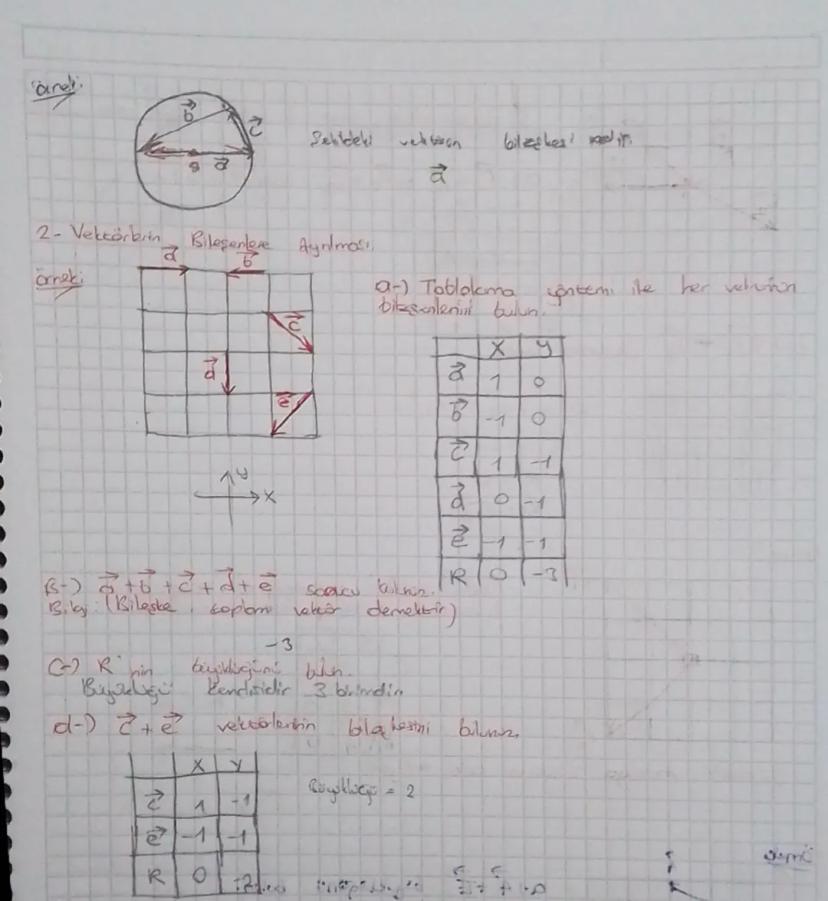 örnek:
b⃗
c⃗
a⃗
Şekildeki vektörün bileşkesi nedir.
a⃗
2- Vektörlerin Bileşenlere Ayrılması
örnek:
a⃗ b⃗
c⃗
d⃗
e⃗
y
x
a-) Tablolama yöntemi ile her vektörün
bileşenlerini bulun.
X Y
a⃗ 1 0
b⃗ -1 0
c⃗ 1 -1
d⃗ 0 -1
e⃗ -1 -1
R 0 -3
B-) a⃗ + b⃗ + c⃗ + d⃗ + e⃗ sonucu bulunuz.
Bilgi: (Bileşke, toplam vektör demektir)
-3
C-) R'nin büyüklüğünü bulun.
Büyüklüğü kendisidir 3 birimdir
d-) c⃗ + e⃗ vektörlerinin bileşkesini bulunuz.
X Y
c⃗ 1 -1
e⃗ -1 -1
R 0 -2
Büyüklüğü = 2